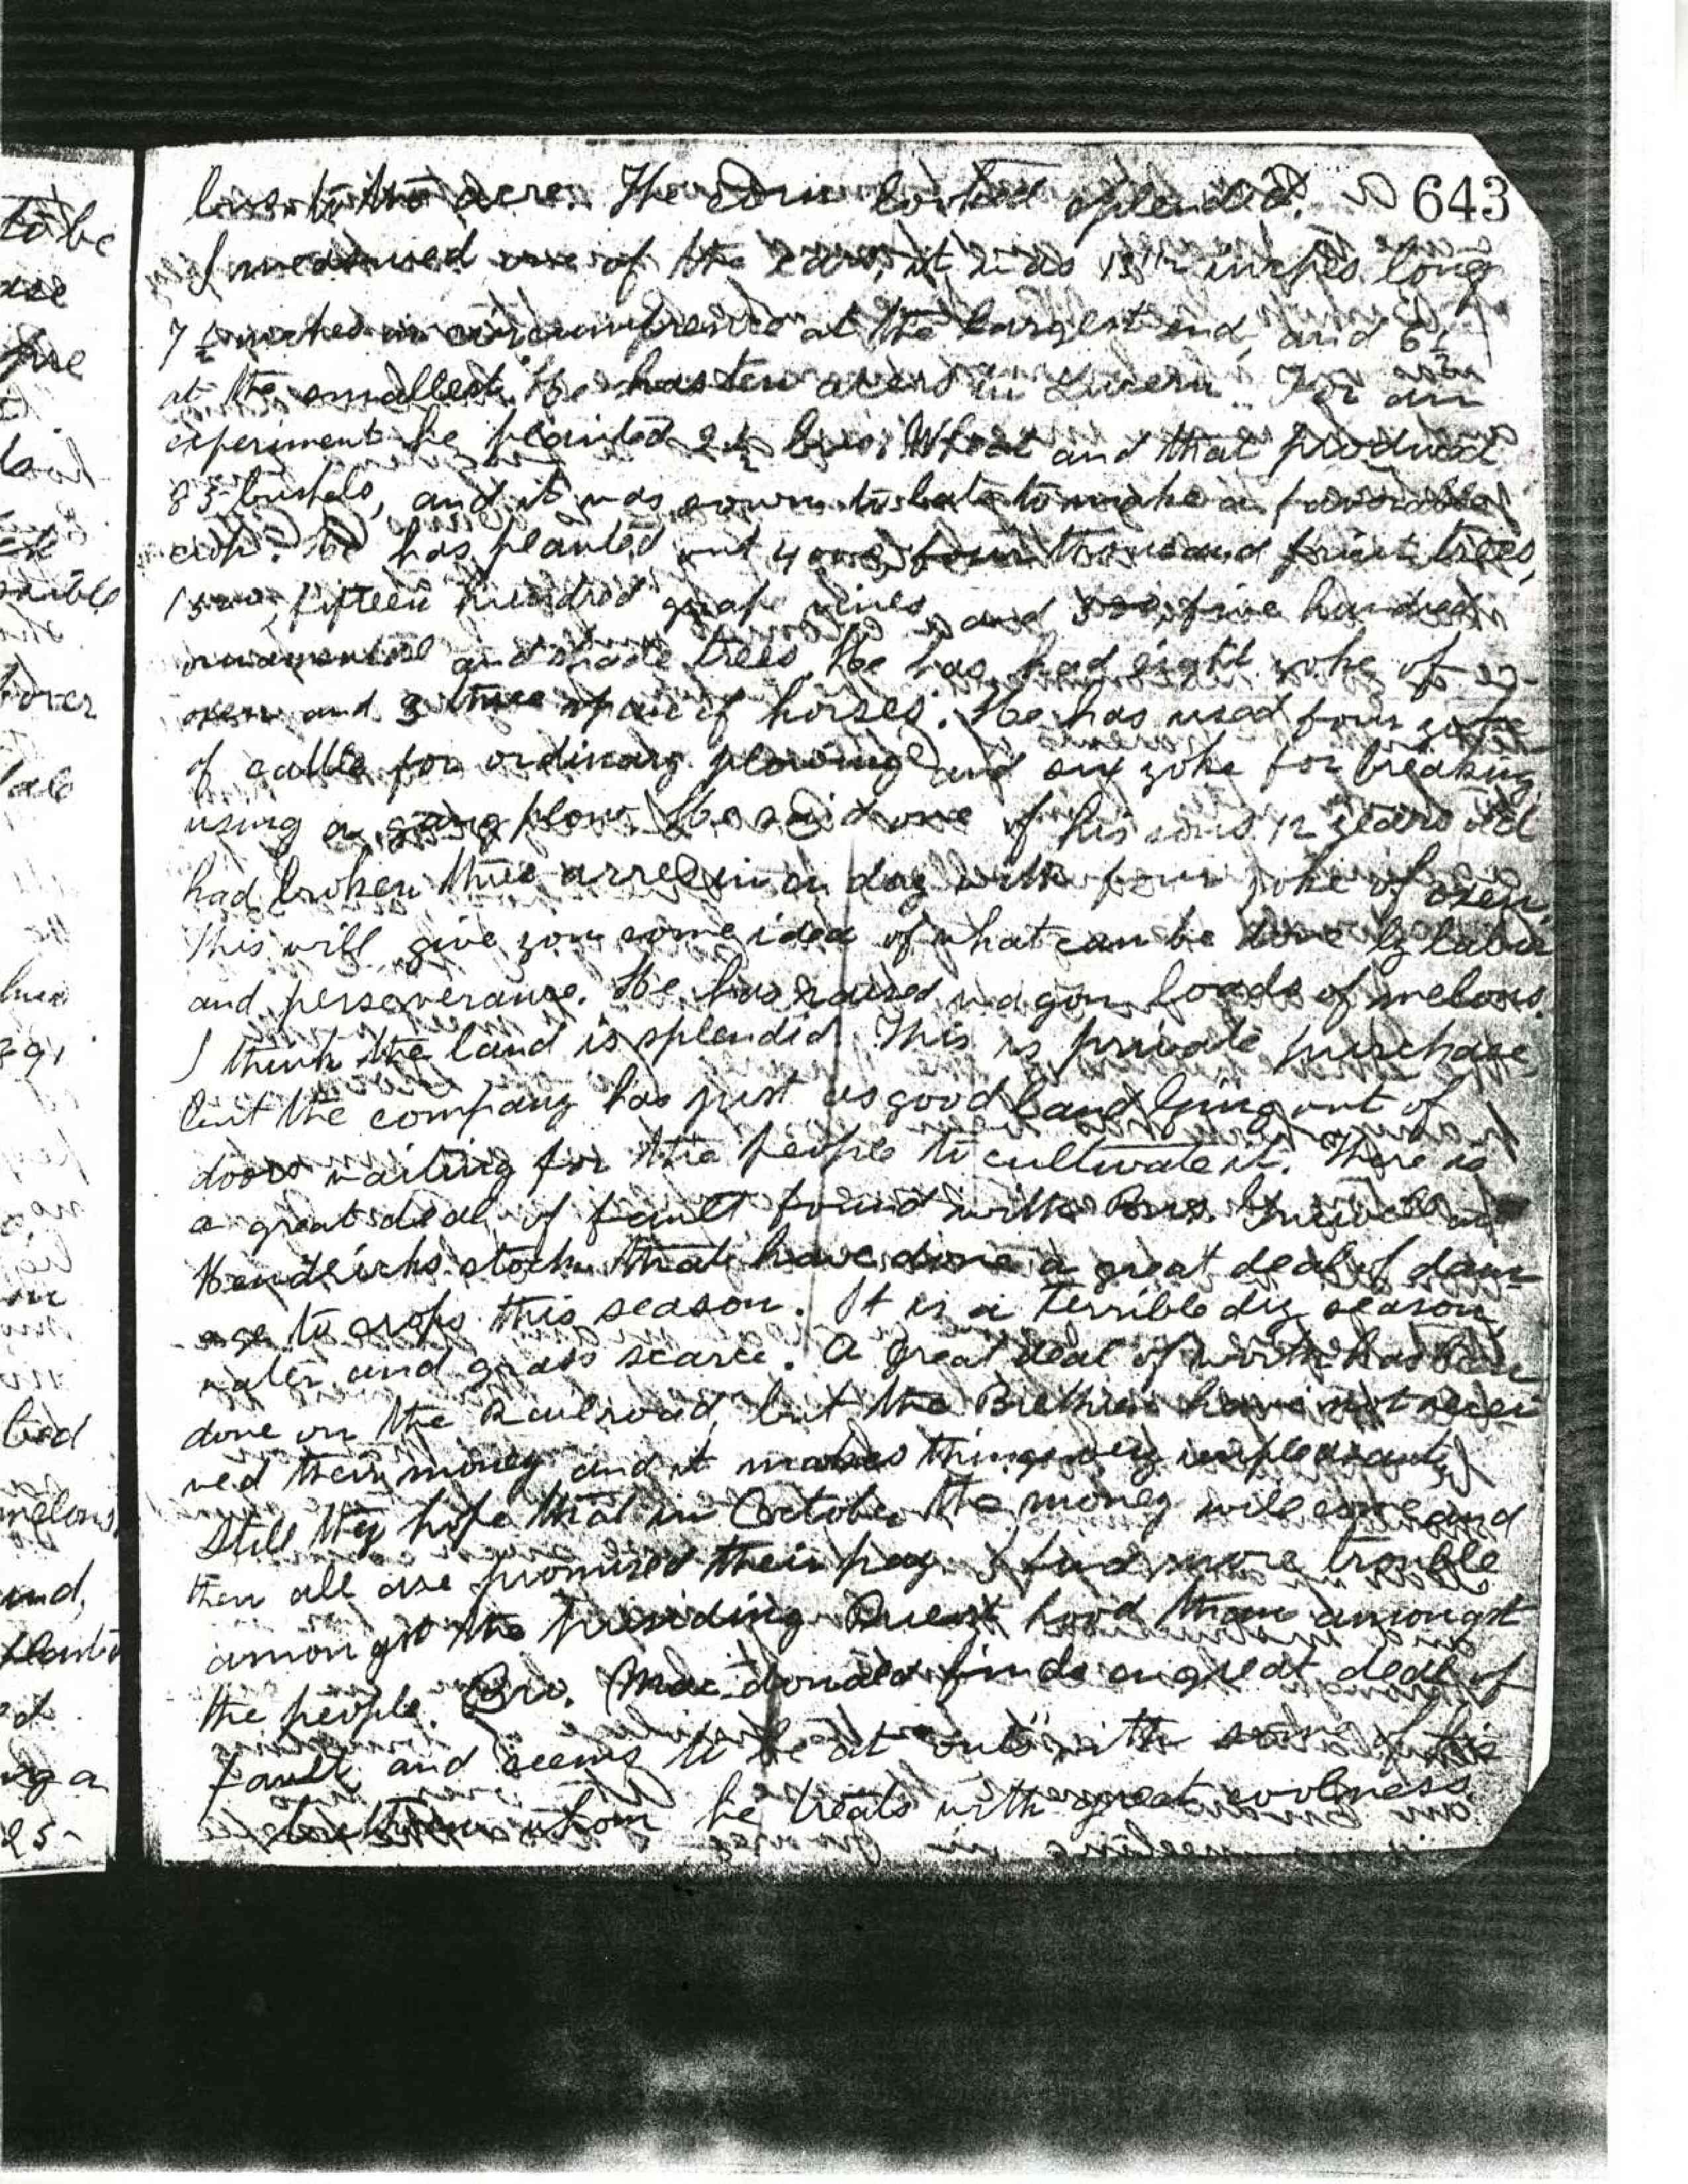 bus. to the acre. The corn looked splendid. 643
I measured one of the ears, it was 13 1/2 inches long
7 1/2 inches in circumfrence at the largest end, and 6 1/2
at the smallest. He has ten acers in Lucern. For an
experiment he planted 2 1/2 bus. Wheat and that produced
83 bushels, and it was sown to late to make a favorable
crop. He has planted out 4000, four thousand fruit trees,
1500, fifteen hundred grape vines and 500, five hundred
ornamental and shade trees. He has had eight yoke of
oxen and 3 three span of horses. He has used four yoke
of cattle for ordinary plowing and six yoke for breaking
using a gang plow. He said one of his sons 12 years old
had broken three acres in a day with four yoke of oxen.
This will give you some idea of what can be done by labor
and perseverance. He has raised wagon loads of melons.
I think the land is splendid. This is private purchase
but the company has just as good land lying out of
doors waiting for the people to cultivate it. There is
a great deal of fault found with Bros.
Hendricks stock that have done a great deal of dam-
age to crops this season. It is a terrible dry season,
water and grass scarce. A great deal of work has been
done on the Railroad, but the Brethren have not recei
ved their money and it makes things very unpleasant,
Still they hope that in October the money will come and
then all are promised their pay. I find more trouble
amongst the presiding Priest hood than amongst
the people. Bro. Mac-donald finds a great deal of
fault and seems to be at "outs" with some of his
brethren whom he treats with great coolness.
to be
fue
over
ale
bed
melons
und,
ng a
25-